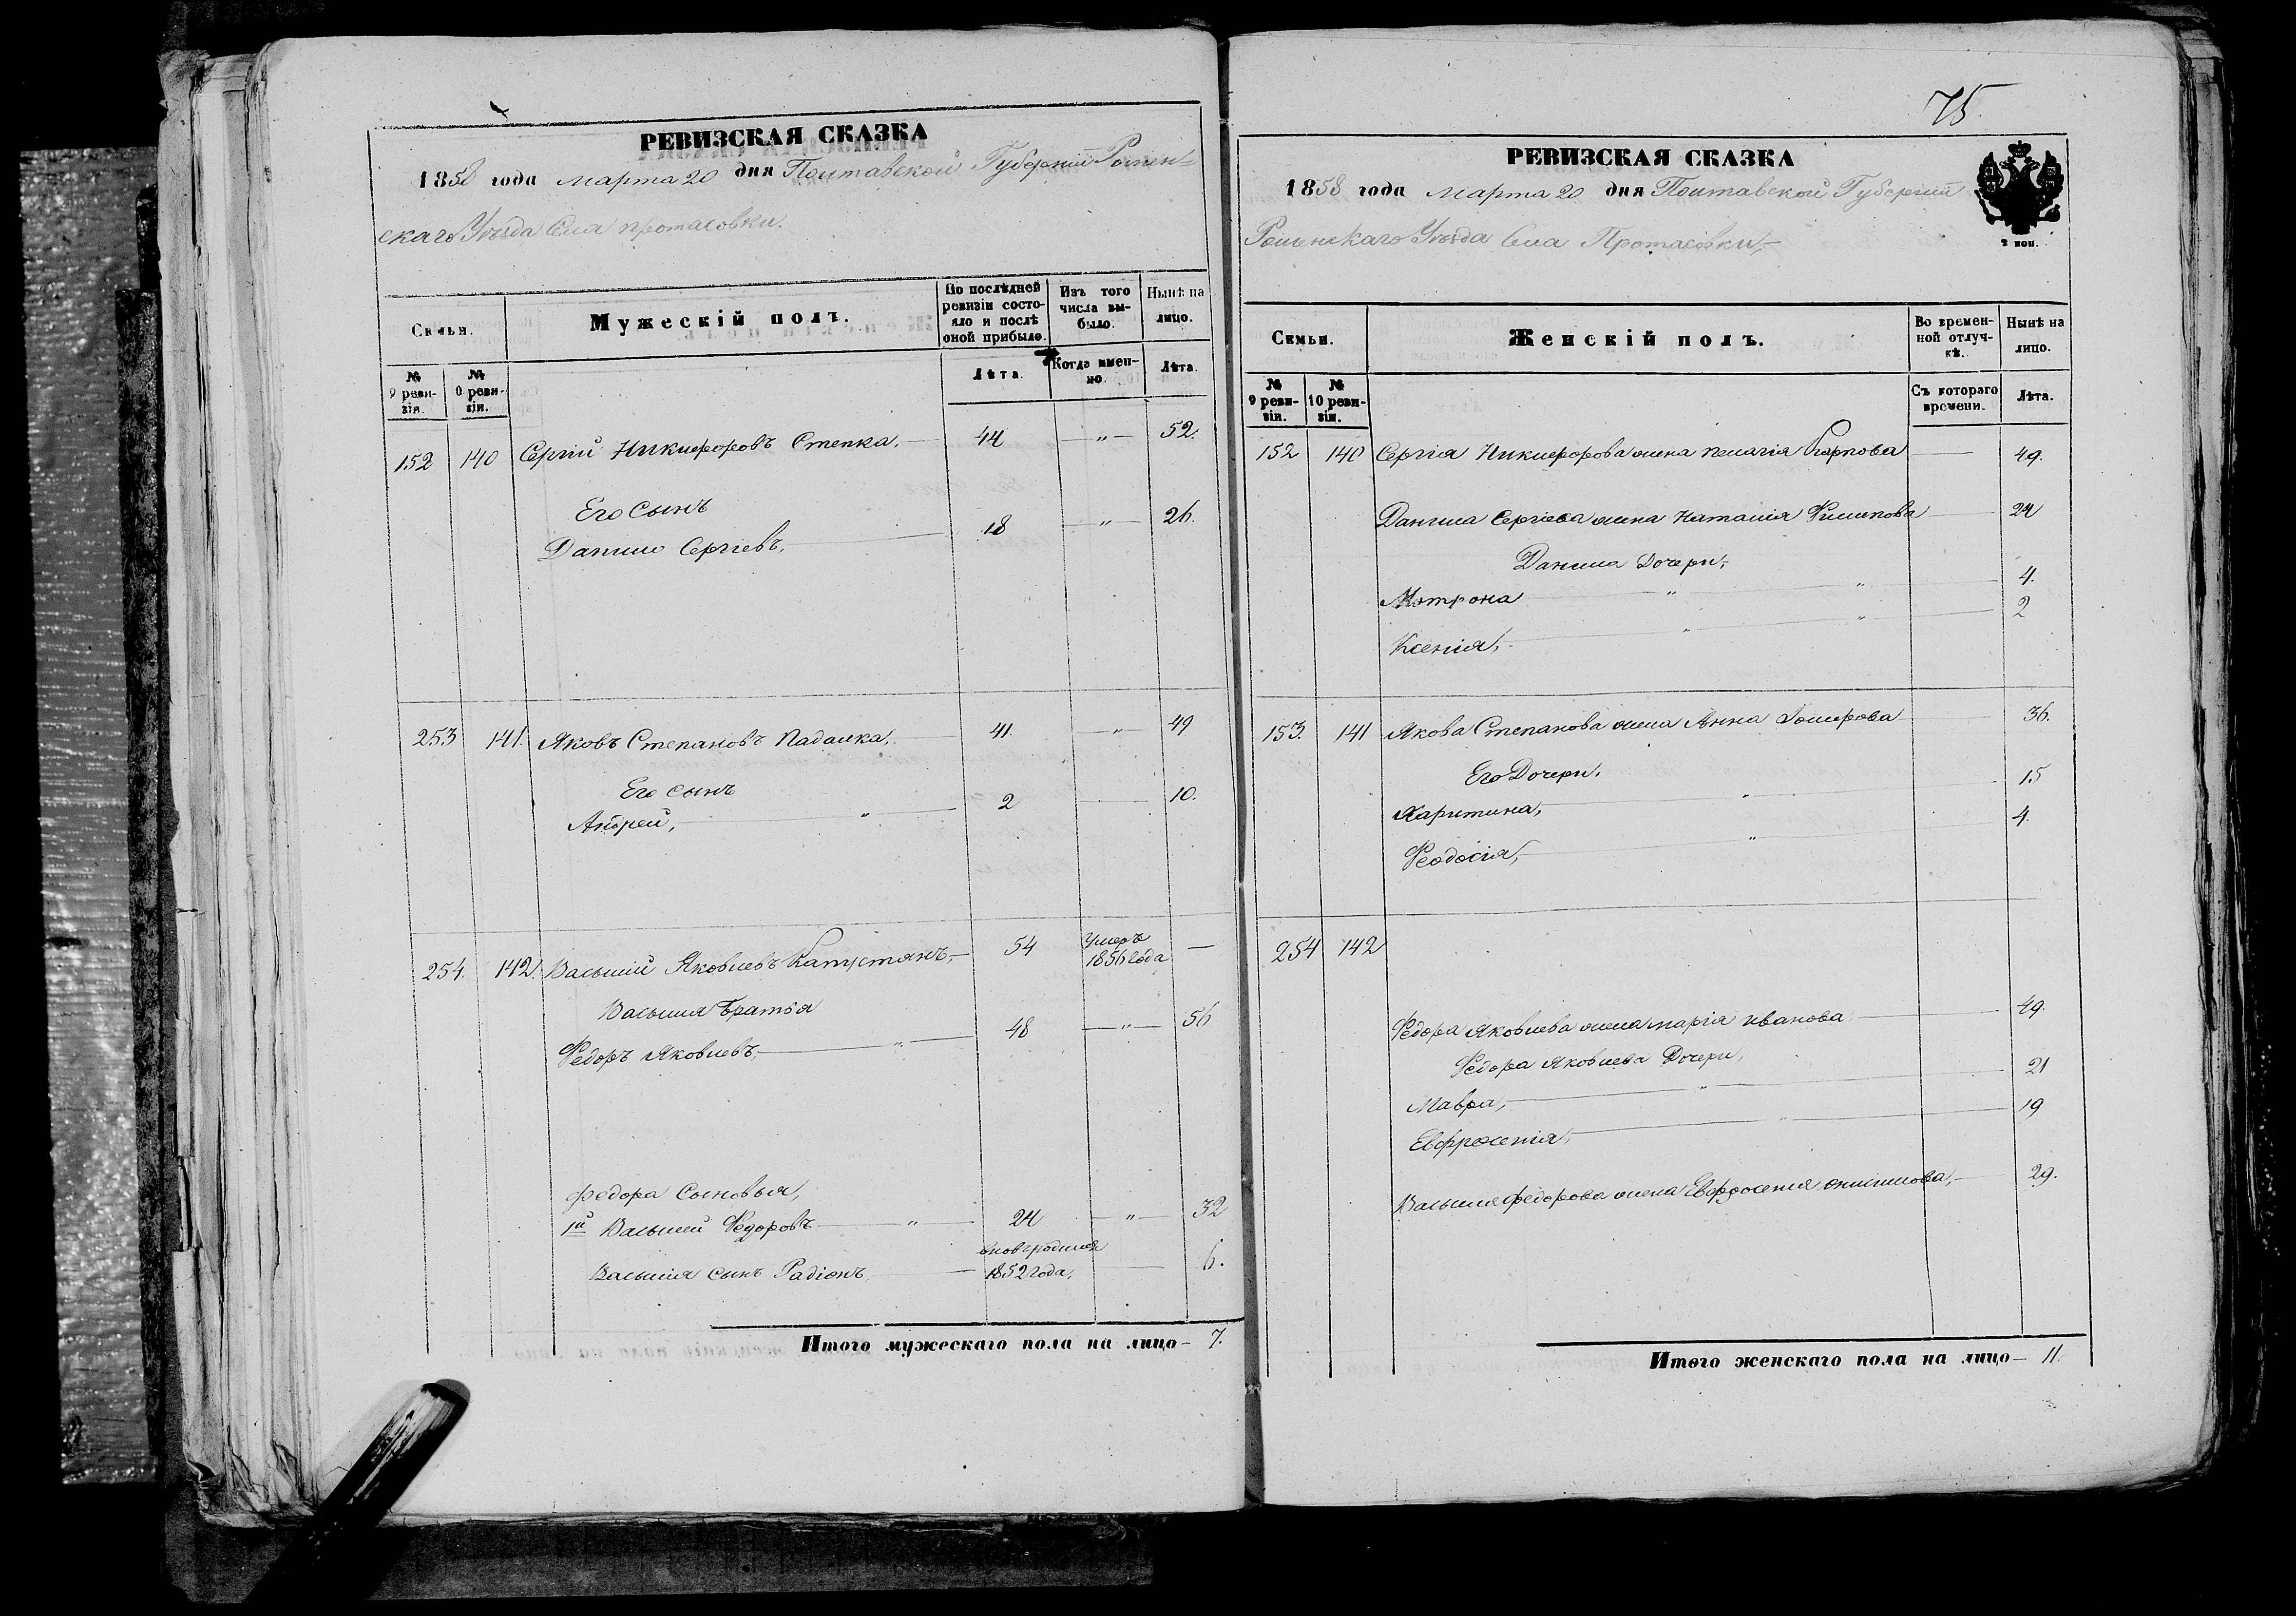 РЕВИЗСКАЯ СКАЗКА
1858 года марта 20 дня Полтавской Губерніи Ромен-
скаго Уѣзда Села протасовки.
Семьи.
Мужескій полъ.
По послѣдней ревизіи состояло и послѣ оной прибыло.
Изъ того числа выбыло.
Нынѣ на лицо.
№ 9 ревизіи.
№ 0 ревизіи.
Лѣта.
Когда именно.
Лѣта.
152 140 Сергій Никифоровъ Степка. 44 — " — 52.
Его Сынъ
Данило Сергіевъ, 18 — " — 26.
253 141. Яковъ Степановъ Падалка, 41. — " — 49
Его сынъ
Андрей, " 2 — 10.
254. 142. Василій Яковлевъ Капустянъ, 54 Умеръ 1856 года —
Василія братья
Федоръ Яковлевъ, " 48 — " — 56
Федора Сыновья,
1й Василій Федоровъ " 24 — " — 32
Василія сынъ Радіонъ вновь родился 1852 года, — 6.
Итого мужескаго пола на лицо — 7.
75.
РЕВИЗСКАЯ СКАЗКА
1858 года марта 20 дня Полтавской Губерніи
Роменскаго Уѣзда Села Протасовки,
2 коп.
Семьи.
Женскій полъ.
Во временной отлучкѣ.
Нынѣ на лицо.
№ 9 ревизіи.
№ 10 ревизіи.
Съ котораго времени.
Лѣта.
152 140 Сергія Никифорова жена пелагія Карпова — 49.
Данила Сергіева жена Наталія Филипова — 24
Данила Дочери,
Мотрона " " 4.
Ксенія, " " 2
153. 141 Якова Степанова жена Анна — 36.
Его Дочери.
Харитина, " 15
Феодосія, " 4.
254 142
Федора Яковлева жена марія иванова — 49.
Федора Яковлева Дочери,
Мавра, " 21
Евфросенія, " 19
Василія федорова жена Евфросенія — 29.
Итого женскаго пола на лицо — 11.